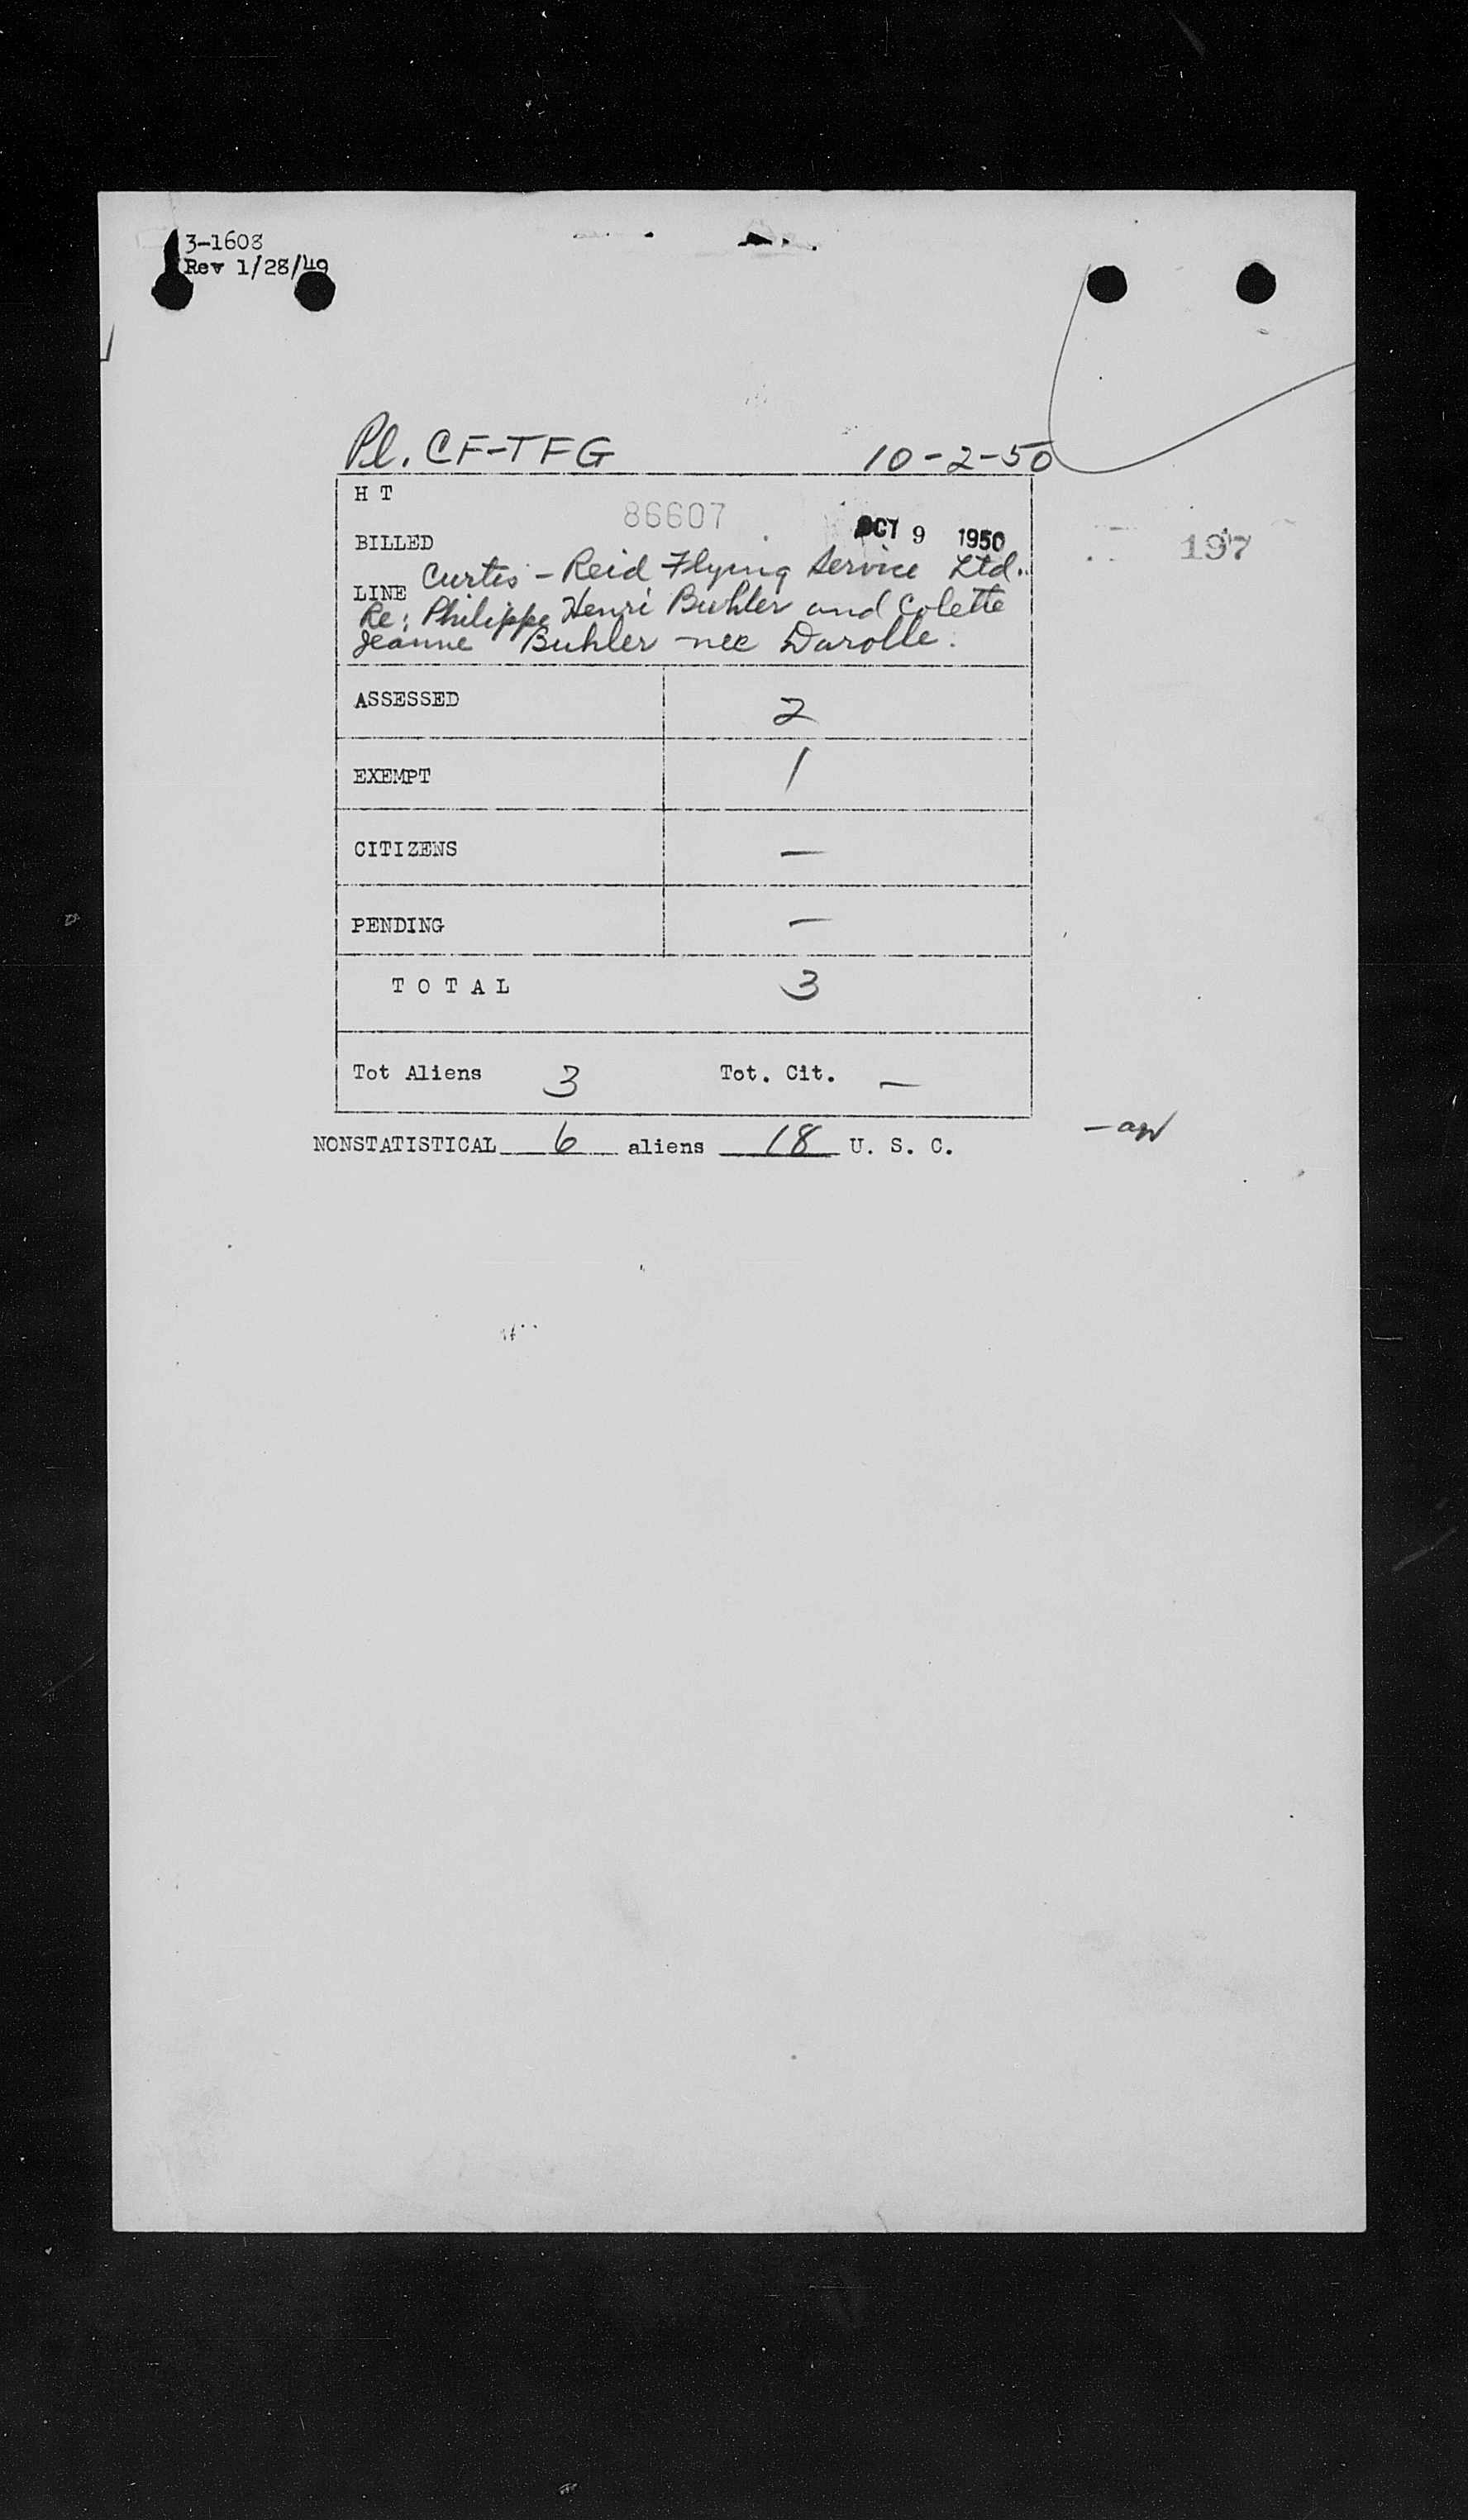 3-1608
Rev 1/28/49
Pl. CF-TFG 10-2-50
H T
86607
BILLED OCT 9 1950 197
LINE Curtis - Reid Flying Service Ltd.
Re: Philippe Henri Buhler and Colette
Jeanne Buhler nee Darolle.
ASSESSED 2
EXEMPT 1
CITIZENS —
PENDING —
T O T A L 3
Tot Aliens 3 Tot. Cit. —
NONSTATISTICAL 6 aliens 18 U. S. C.